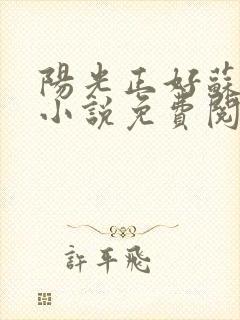 陽光正好蘇
小說免費閱
許平飛